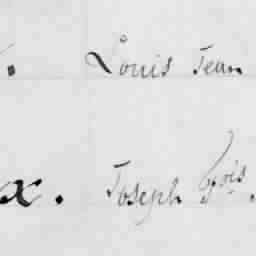 . Louis Jean
x. Joseph